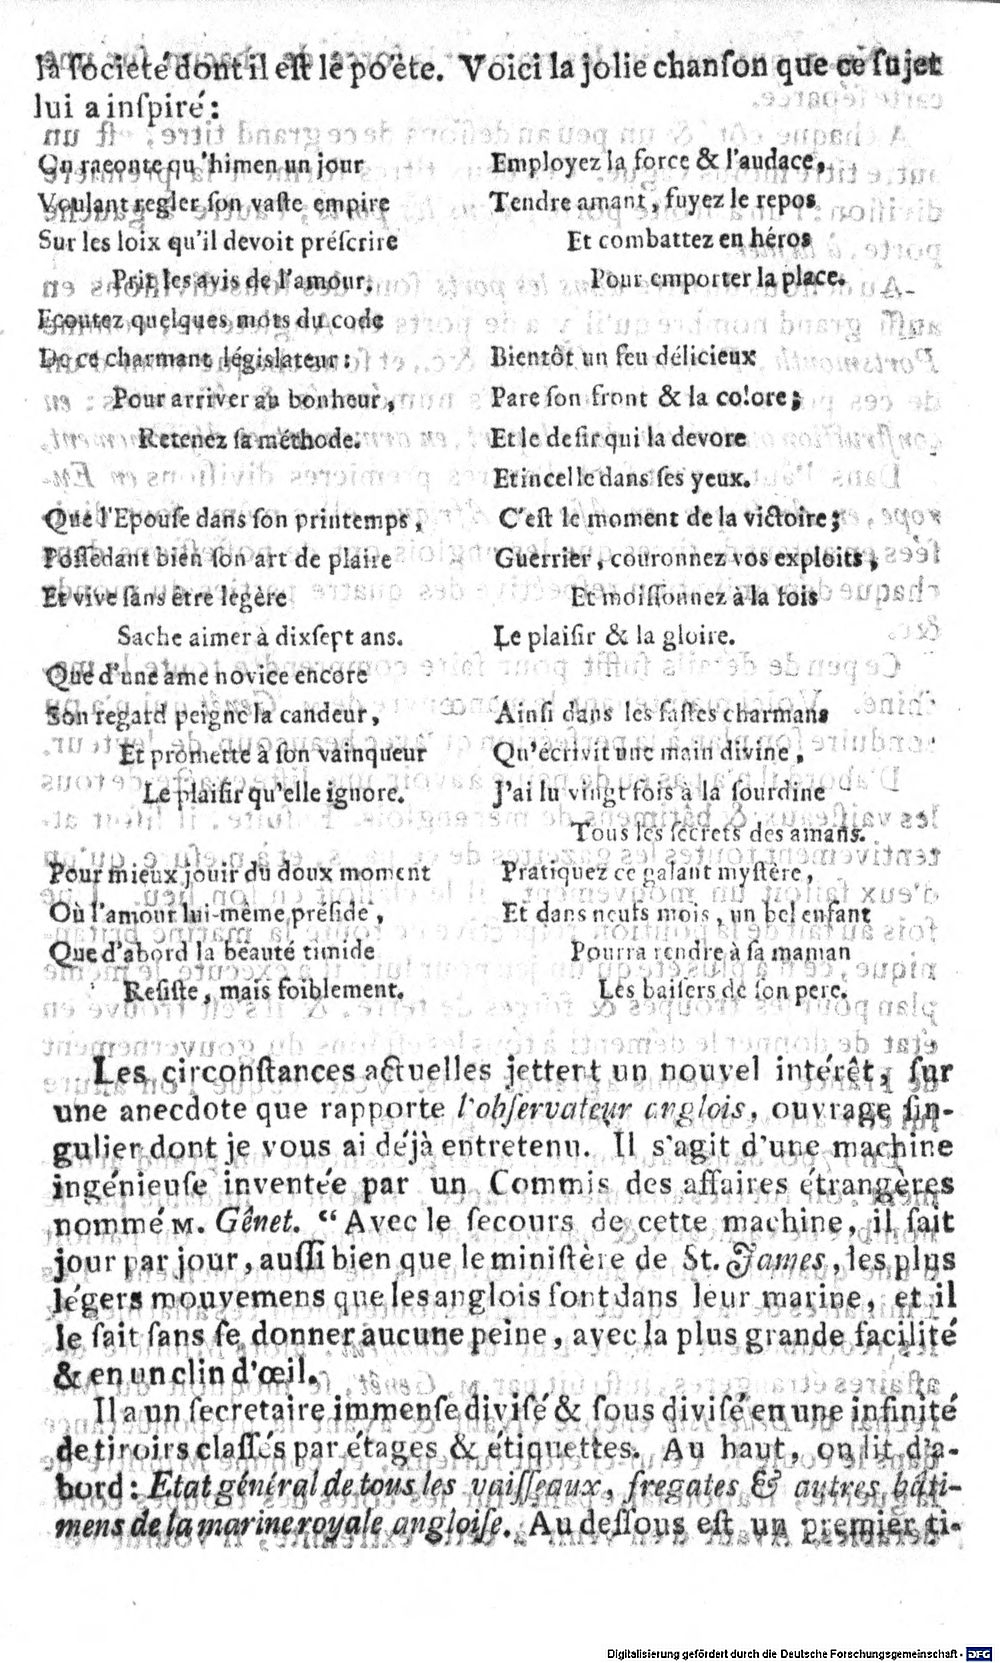 la ſocieté dont il eſt le po'ëte. Voici la jolie chanſon que ce ſujet
lui a inſpiré:
On raconte qu'himen un jour
Voulant regler ſon vaſte empire
Sur les loix qu'il devoit préſcrire
Prit les avis de l'amour.
Ecoutez quelques mots du code
De ce charmant législateur:
Pour arriver au bonheur,
Retenez ſa méthode.
Que l'Epouſe dans ſon printemps,
Poſſedant bien ſon art de plaire
Et vive ſans être légère
Sache aimer à dixſept ans.
Que d'une ame novice encore
Son regard peigne la candeur,
Et promette à ſon vainqueur
Le plaiſir qu'elle ignore.
Pour mieux jouir du doux moment
Où l'amour lui-même préſide,
Que d'abord la beauté timide
Reſiſte, mais foiblement.
Employez la force & l'audace,
Tendre amant, fuyez le repos
Et combattez en héros
Pour emporter la place.
Bientôt un feu délicieux
Pare ſon front & la colore;
Et le deſir qui la devore
Etincelle dans ſes yeux.
C'eſt le moment de la victoire;
Guerrier, couronnez vos exploits,
Et moiſſonnez à la fois
Le plaiſir & la gloire.
Ainſi dans les faſtes charmans
Qu'écrivit une main divine,
J'ai lu vingt fois à la ſourdine
Tous les ſecrets des amans.
Pratiquez ce galant myſtère,
Et dans neufs mois, un bel enfant
Pourra rendre à ſa maman
Les baiſers de ſon pere.
Les circonſtances actuelles jettent un nouvel intérêt, ſur
une anecdote que rapporte l'obſervateur anglois, ouvrage ſin-
gulier dont je vous ai déjà entretenu. Il s'agit d'une machine
ingénieuſe inventée par un Commis des affaires étrangères
nommé M. Gênet. “Avec le ſecours de cette machine, il ſait
jour par jour, auſſi bien que le miniſtère de St. James, les plus
légers mouvemens que les anglois font dans leur marine, et il
le ſait ſans ſe donner aucune peine, avec la plus grande facilité
& en un clin d'œil.
Il a un ſecretaire immenſe diviſé & ſous diviſé en une infinité
de tiroirs claſſés par étages & étiquettes. Au haut, on lit d'a-
bord: Etat général de tous les vaiſſeaux, fregates & autres bâti-
mens de la marine royale angloiſe. Au deſſous eſt un premier ti-
Digitalisierung gefördert durch die Deutsche Forschungsgemeinschaft - DFG